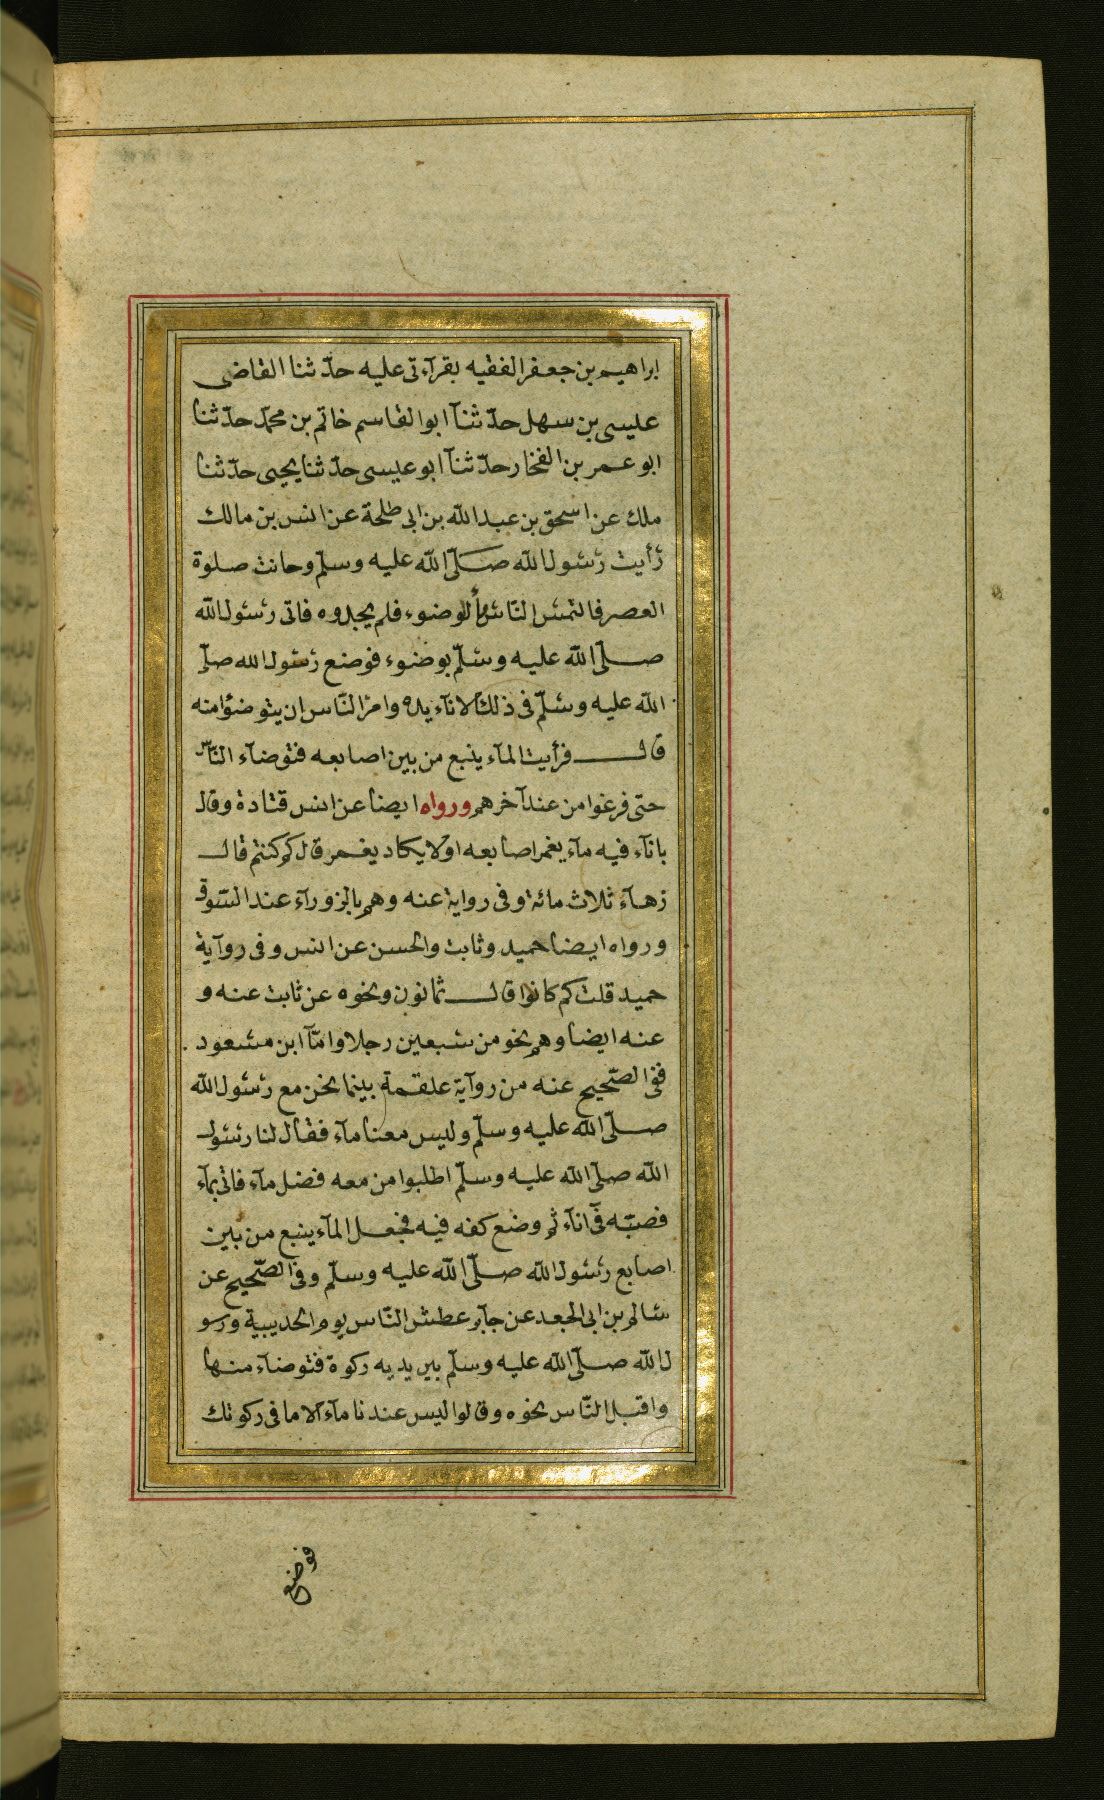 ابراهيم بن جعفر الفقيه بقرآءتى عليه حدّثنا القاضى
عليسى بن سهل حدّثنآ ابوا لقاسم خاتم بن محمّد حدّثنا
ابو عمر بن الفخار حدّثنآ ابو عيسى حدّثنا يحيى حدّثنا
ملك عن اسحق بن عبد الله بن ابى طلحة عن انس بن مالك
رأيت رسول الله صلّى الله عليه وسلّم وحانت صلوة
العصر فالتمس النّاس مأ الوضوء فلم يجدوه فاتى رسول الله
صلّى الله عليه وسلّم بوضوء فوضع رسول الله صلّى
الله عليه وسلّم فى ذلك الانآء يده وامر النّاس ان يتوضؤا منه
قال فرأيت المآء ينبع من بين اصابعه فتوضاء النّاس
حتى فرغوا من عند آخرهم ورواه ايضا عن انس قتادة وقال
بانآء فيه مآء يغمر اصابعه او لا يكاد يغمر قال كم كنتم قال
زهآء ثلاث مائة وفى رواية عنه وهم بالزورآء عند السّوق
ورواه ايضا حميد وثابت والحسن عن انس وفى روآية
حميد قلت كم كانوا قال ثمانون ونحوه عن ثابت عنه و
عنه ايضا وهم نحو من سبعين رجلا وامّا ابن مسعود
ففى الصّحيح عنه من روآية علقمة بينما نحن مع رسول الله
صلّى الله عليه وسلّم وليس معنا مآء فقال لنا رسول
الله صلّى الله عليه وسلّم اطلبوا من معه فضل مآء فاتى بمآء
فصبّه فى انآء ثم وضع كفه فيه فجعل المآء ينبع من بين
اصابع رسول الله صلّى الله عليه وسلّم وفى الصّحيح عن
سالم بن ابى الجعد عن جابر عطش النّاس يوم الحديبية ورسو
ل الله صلّى الله عليه وسلّم بين يديه ركوة فتوضاء منها
واقبل النّاس نحوه وقالوا ليس عندنا مآء الا ما فى ركوتك
فوضع